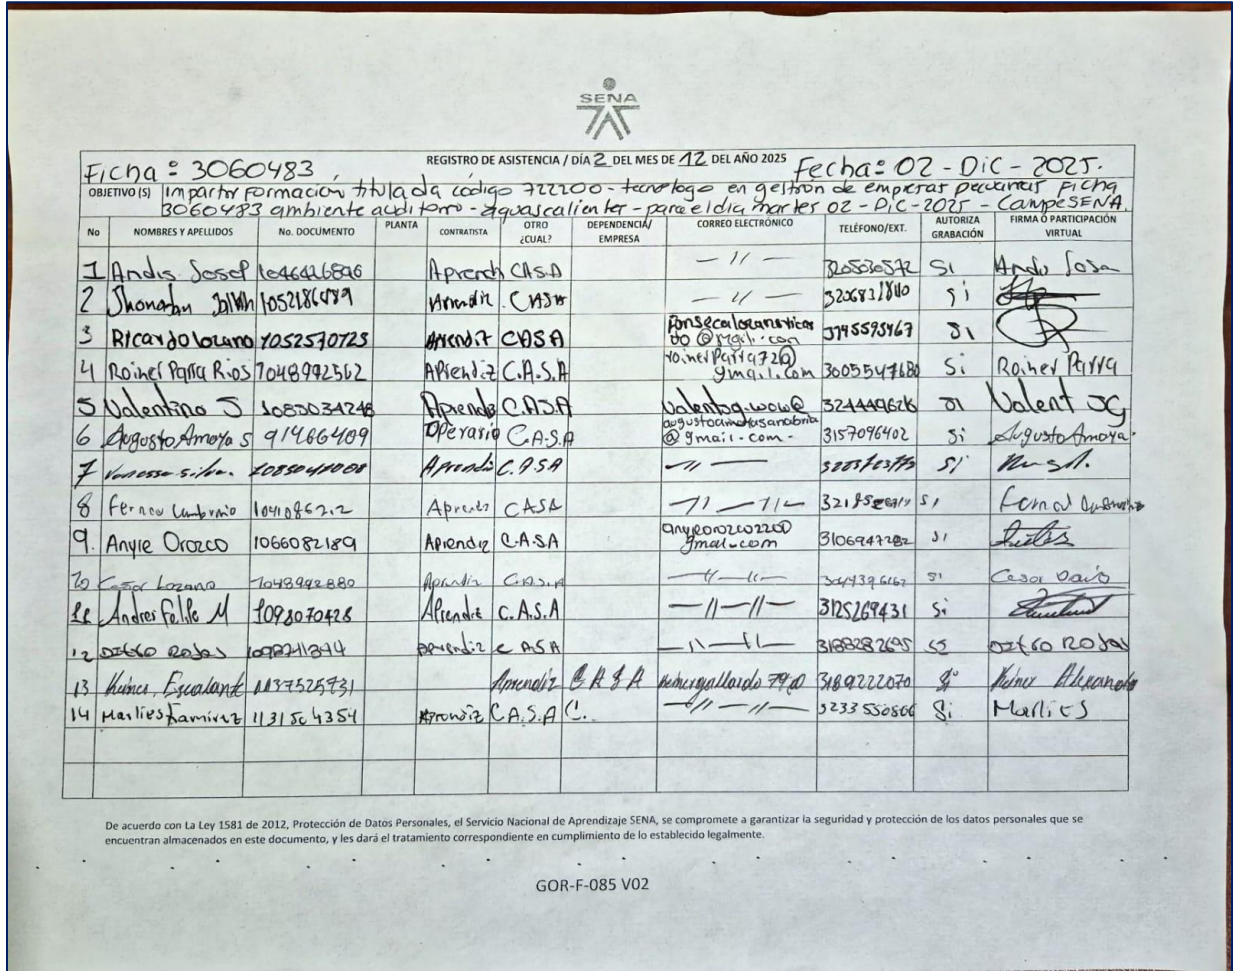 SENA
Ficha: 3060483 REGISTRO DE ASISTENCIA / DÍA 2 DEL MES DE 12 DEL AÑO 2025 Fecha: 02 - Dic - 2025.
OBJETIVO (S) Impartir formacion titulada código 722200 - tecnologo en gestion de empresas pecuarias ficha
3060483 ambiente auditorio - aguascalientes - para el dia martes 02 - Dic - 2025 - CampeSENA.
No NOMBRES Y APELLIDOS No. DOCUMENTO PLANTA CONTRATISTA OTRO ¿CUAL? DEPENDENCIA/ EMPRESA CORREO ELECTRÓNICO TELÉFONO/EXT. AUTORIZA GRABACIÓN FIRMA O PARTICIPACIÓN VIRTUAL
1 Andis 1046426896 Aprend CASA - 11 - Si
2 1052186989 CASA - 11 - si
3 Ricardo Lozano 1052570725 Aprendiz CASA 3145595467 si
4 Roiner Parra Rios 1048992562 Aprendiz C.A.S.A roinerparra72@ gmail.com 3005547680 Si Roiner Parra
5 Valentino S 1083034248 C.A.S.A si
6 Augusto Amoya S 91466409 Operario C.A.S.A @gmail.com - 3157096402 Si Augusto Amoya
7 Vanessa silva. Aprendiz C.A.S.A - 11 - si
8 CASA - 11 - 11 - si
9. Anyie Orozco 1066082189 Aprendiz C.A.SA gmal.com 3106947282 si
10 Cesar Lozano 1048992880 Aprendiz C.A.S.A - 11 - 11 - si Cesar
11 Andres Felipe M 1098070428 Aprendiz C.A.S.A - 11 - 11 - 3125269431 Si
12 Diego Rojas Aprendiz C ASA - 11 - 11 - 3188282695 Diego Rojas
13 Keiner Escalante 1137525931 Aprendiz CASA 3189222070 Si Keiner
14 Marlies Ramirez Aprendiz C.A.S.A C. - 11 - 11 - Si Marlies
De acuerdo con La Ley 1581 de 2012, Protección de Datos Personales, el Servicio Nacional de Aprendizaje SENA, se compromete a garantizar la seguridad y protección de los datos personales que se
encuentran almacenados en este documento, y les dará el tratamiento correspondiente en cumplimiento de lo establecido legalmente.
GOR-F-085 V02